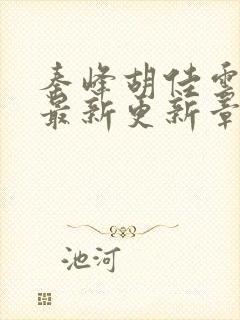 秦峰胡佳雲
最新更新章
池河